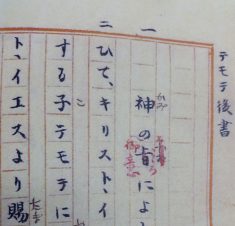 テモテ後書
一
神の旨によ
かみ
二
ひて、キリスト・イ
する子テモテに
こ
ト・イエスより賜
たま